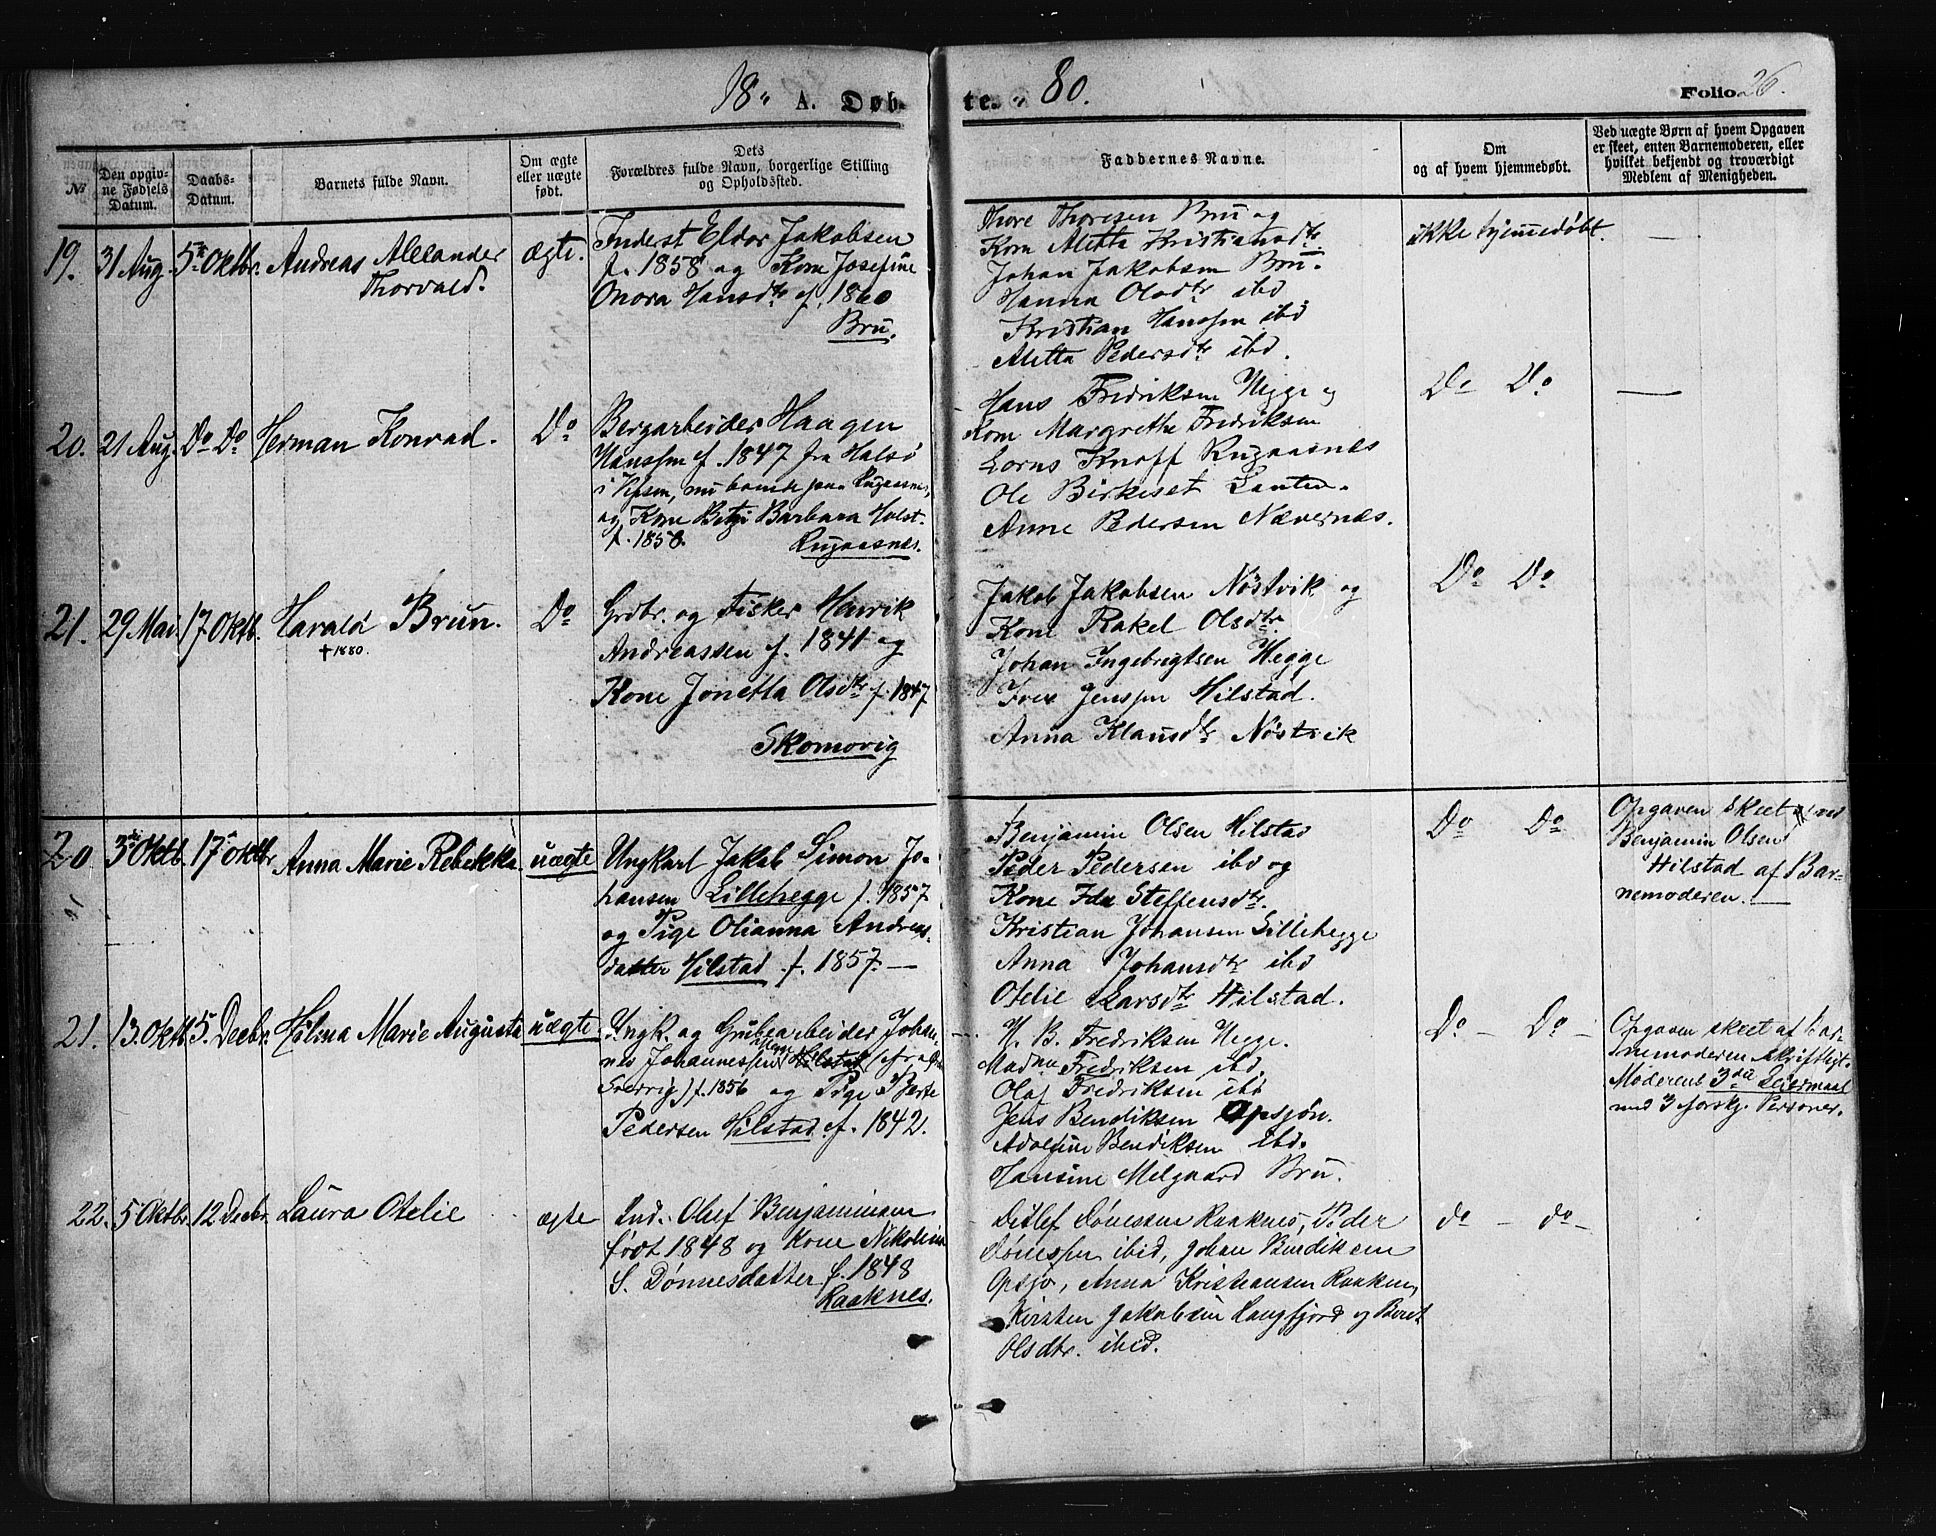 18 A. Døb-
te. 80.
Folio 26.
№
Den opgiv-
ne Fødsels
Datum.
Daabs-
Datum.
Barnets fulde Navn.
Om ægte
eller uægte
født.
Dets
Forældres fulde Navn, borgerlige Stilling
og Opholdssted.
Faddernes Navne.
Om
og af hvem hjemmedøbt.
Ved uægte Børn af hvem Opgaven
er skeet, enten Barnemoderen, eller
hvilket bekjendt og troværdigt
Medlem af Menigheden.
19. 31 Aug. 5te Oktbr. Andreas Alexander
Thorvald.
ægte.
Inderst Jakobsen
f. 1858 og Kone Josefine
Onora Hansdtr f. 1860
Bru.
Thore Thoresen Bru og
Kone Aletta Kristiansdtr
Johan Jakobsen Bru.
Hanna Olsdtr ibd.
Kristian Hanssen ibd
Aletta Pedersdtr ibd.
ikke hjemmedøbt. —
20. 21 Aug. Do Do Herman Konrad.
Do
Bergarbeider Haagen
Hanssen f. 1847 fra Halsø
i Vefsen, nu boende paa Rugaasnes,
og Kone Barbara Holst
f. 1858.
Rugaasnes.
Hans Fredriksen Hegge og
Kone Margrethe Fredriksen
Knoff Rugaasnes
Ole Birkeset
Anne Pedersen Nævernes.
Do Do —
21. 29 Mai. 17 Oktb. Harald Brun.
† 1880.
Do
Grdbr. og Fisker Henrik
Andreassen f. 1841 og
Kone Jonetta Olsdtr f. 1847
Skomovig
Jakob Jakobsen Nøstvik og
Kone Rakel Olsdtr.
Johan Ingebrigtsen Hegge
Jenssen Hilstad.
Anna Klausdtr Nøstvik
Do Do
20 3die Oktb. 17 Oktbr. Anna Marie Rebekka.
uægte
Ungkarl Jakob Simon Jo-
hansen Lillehegge f. 1857
og Pige Olianna Andreas-
datter Hilstad f. 1857. —
Benjamin Olsen Hilstad
Peder Pedersen ibd og
Kone Ida Steffensdtr.
Kristian Johansen Lillehegge
Anna Johansdtr ibd
Otelie Larsdtr Hilstad.
Do Do
Opgaven skeet ved
Benjamin Olsen
Hilstad af Bar-
nemoderen. —
21. 13 Oktb. 5. Decbr. Hilma Marie Augusta
uægte
Ungk. og Grubearbeider Johan-
nes Johannessen Hilstad (fra
) f. 1856 og Pige Berte
Pedersen Hilstad f. 1842.
H. B. Fredriksen Hegge.
Fredriksen ibd.
Olaf Fredriksen ibd
Jens Bendiksen Opsjøn.
Adolfine Bendiksen ibd.
Hansine Melgaard Bru.
Do — Do —
Opgaven skeet af Bar-
nemoderen skriftligt.
Moderens 3die Leiermaal
med 3 forskj. Personer.
22. 5 Oktbr. 12 Decbr. Laura Otelie
ægte
Ind. Oluf Benjaminsen
født 1848 og Kone Nikoline
S. Dønnesdatter f. 1848
Raaknes.
Detlef Dønessen Raaknes, Peder
Dønessen ibid, Johan Bendiksen
Opsjø, Anna Kristiansen Raaknes,
Kirsten Jakobsen Langfjord og Beret
Olsdtr. ibid.
do — do —